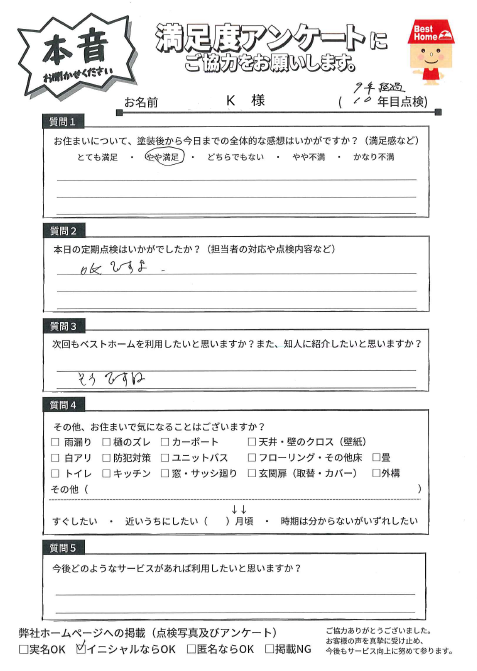 本音
お聞かせください
満足度アンケートに
ご協力をお願いします。
Best Home
9年経過
お名前 K 様 (10年目点検)
質問1
お住まいについて、塗装後から今日までの全体的な感想はいかがですか？（満足感など）
とても満足 ・ やや満足 ・ どちらでもない ・ やや不満 ・ かなり不満
質問2
本日の定期点検はいかがでしたか？（担当者の対応や点検内容など）
OKですよ
質問3
次回もベストホームを利用したいと思いますか？また、知人に紹介したいと思いますか？
そうですね
質問4
その他、お住まいで気になることはございますか？
□ 雨漏り □ 樋のズレ □ カーポート □ 天井・壁のクロス（壁紙）
□ 白アリ □ 防犯対策 □ ユニットバス □ フローリング・その他床 □畳
□ トイレ □ キッチン □ 窓・サッシ廻り □ 玄関扉（取替・カバー） □外構
その他（ ）
↓↓
すぐしたい ・ 近いうちにしたい（ ）月頃 ・ 時期は分からないがいずれしたい
質問5
今後どのようなサービスがあれば利用したいと思いますか？
弊社ホームページへの掲載（点検写真及びアンケート）
□実名OK ☑イニシャルならOK □匿名ならOK □掲載NG
ご協力ありがとうございました。
お客様の声を真摯に受け止め、
今後もサービス向上に努めて参ります。